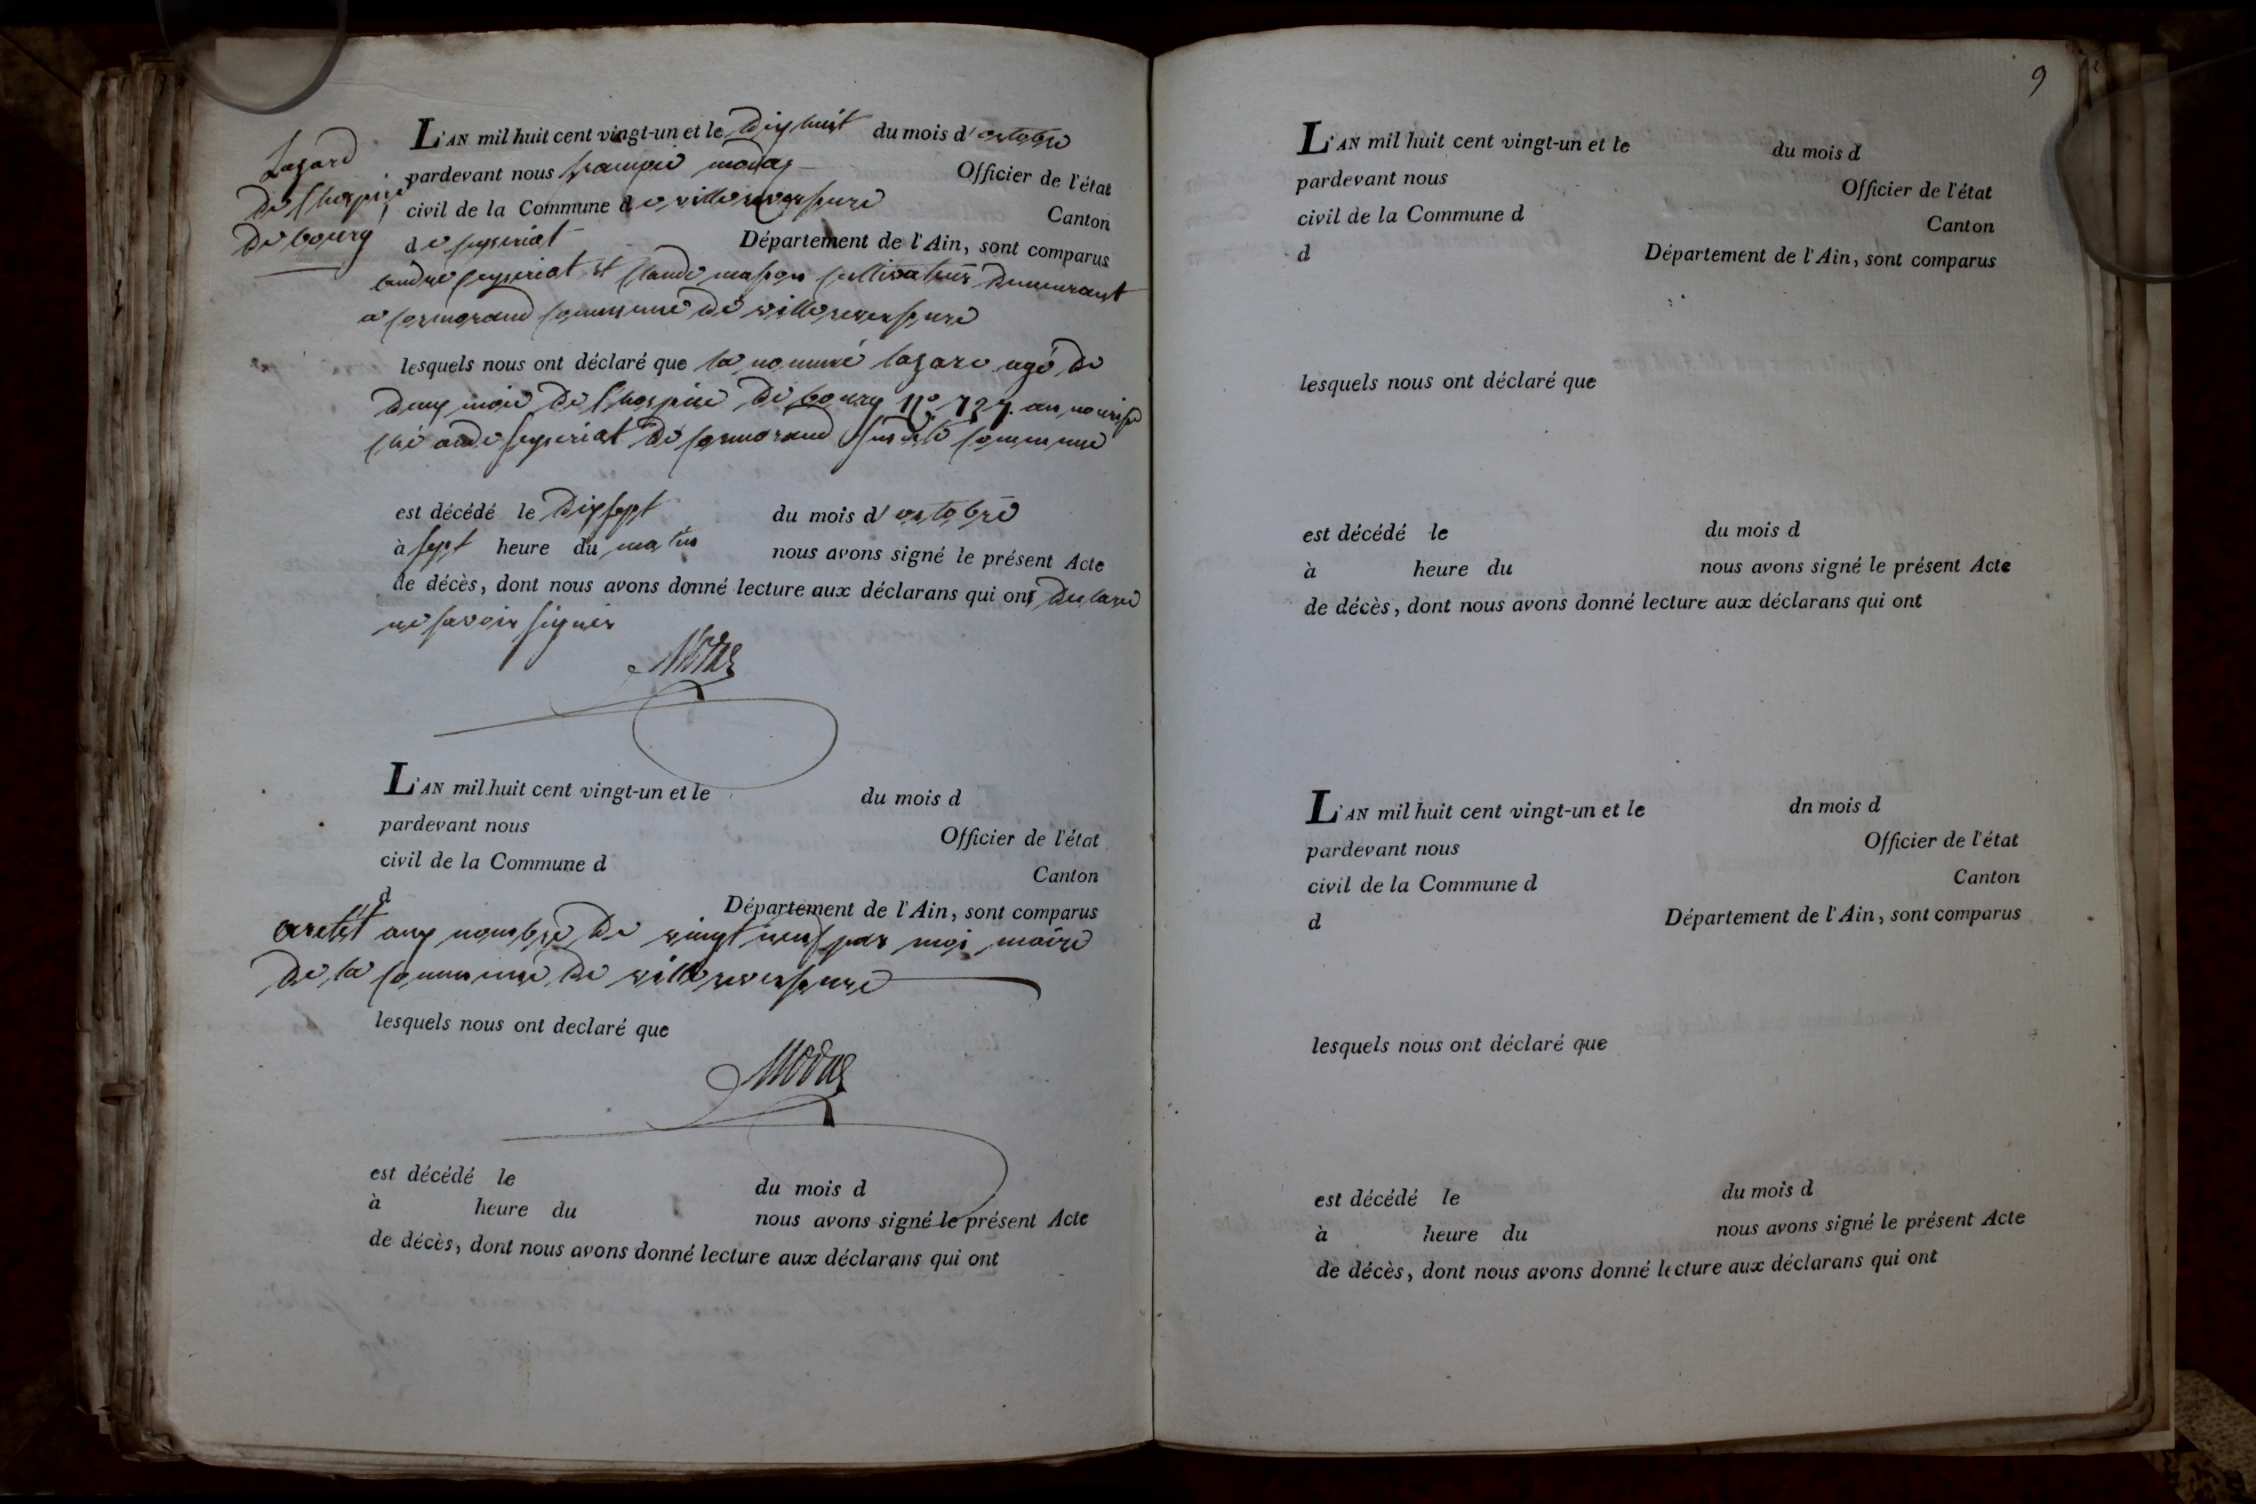 Lazard
de l'hospice
de bourg
L'AN mil huit cent vingt-un et le dix huit du mois d'octobre
pardevant nous françois modas Officier de l'état
civil de la Commune de villereversure Canton
de seyseriat Département de l'Ain, sont comparus
andre seyseriat et Claude masson cultivateurs demeurant
a cormorand commune de villereversure
lesquels nous ont déclaré que le nommé lazare agé de
deux mois de l'hospice de bourg n° 727. au nourisse
ché ande seyseriat de cormorand sus dite commune
est décédé le dix sept du mois d'octobre
à sept heure du matin nous avons signé le présent Acte
de décès, dont nous avons donné lecture aux déclarans qui ont declare
ne savoir signer
Modas
L'AN mil huit cent vingt-un et le du mois d
pardevant nous Officier de l'état
civil de la Commune d Canton
d Département de l'Ain, sont comparus
aretét aux nombre de vingt neuf par moi maire
de la commune de villereversure
lesquels nous ont declaré que
Modas
est décédé le du mois d
à heure du nous avons signé le présent Acte
de décès, dont nous avons donné lecture aux déclarans qui ont
9
L'AN mil huit cent vingt-un et le du mois d
pardevant nous Officier de l'état
civil de la Commune d Canton
d Département de l'Ain, sont comparus
lesquels nous ont déclaré que
est décédé le du mois d
à heure du nous avons signé le présent Acte
de décès, dont nous avons donné lecture aux déclarans qui ont
L'AN mil huit cent vingt-un et le dn mois d
pardevant nous Officier de l'état
civil de la Commune d Canton
d Département de l'Ain, sont comparus
lesquels nous ont déclaré que
est décédé le du mois d
à heure du nous avons signé le présent Acte
de décès, dont nous avons donné lecture aux déclarans qui ont